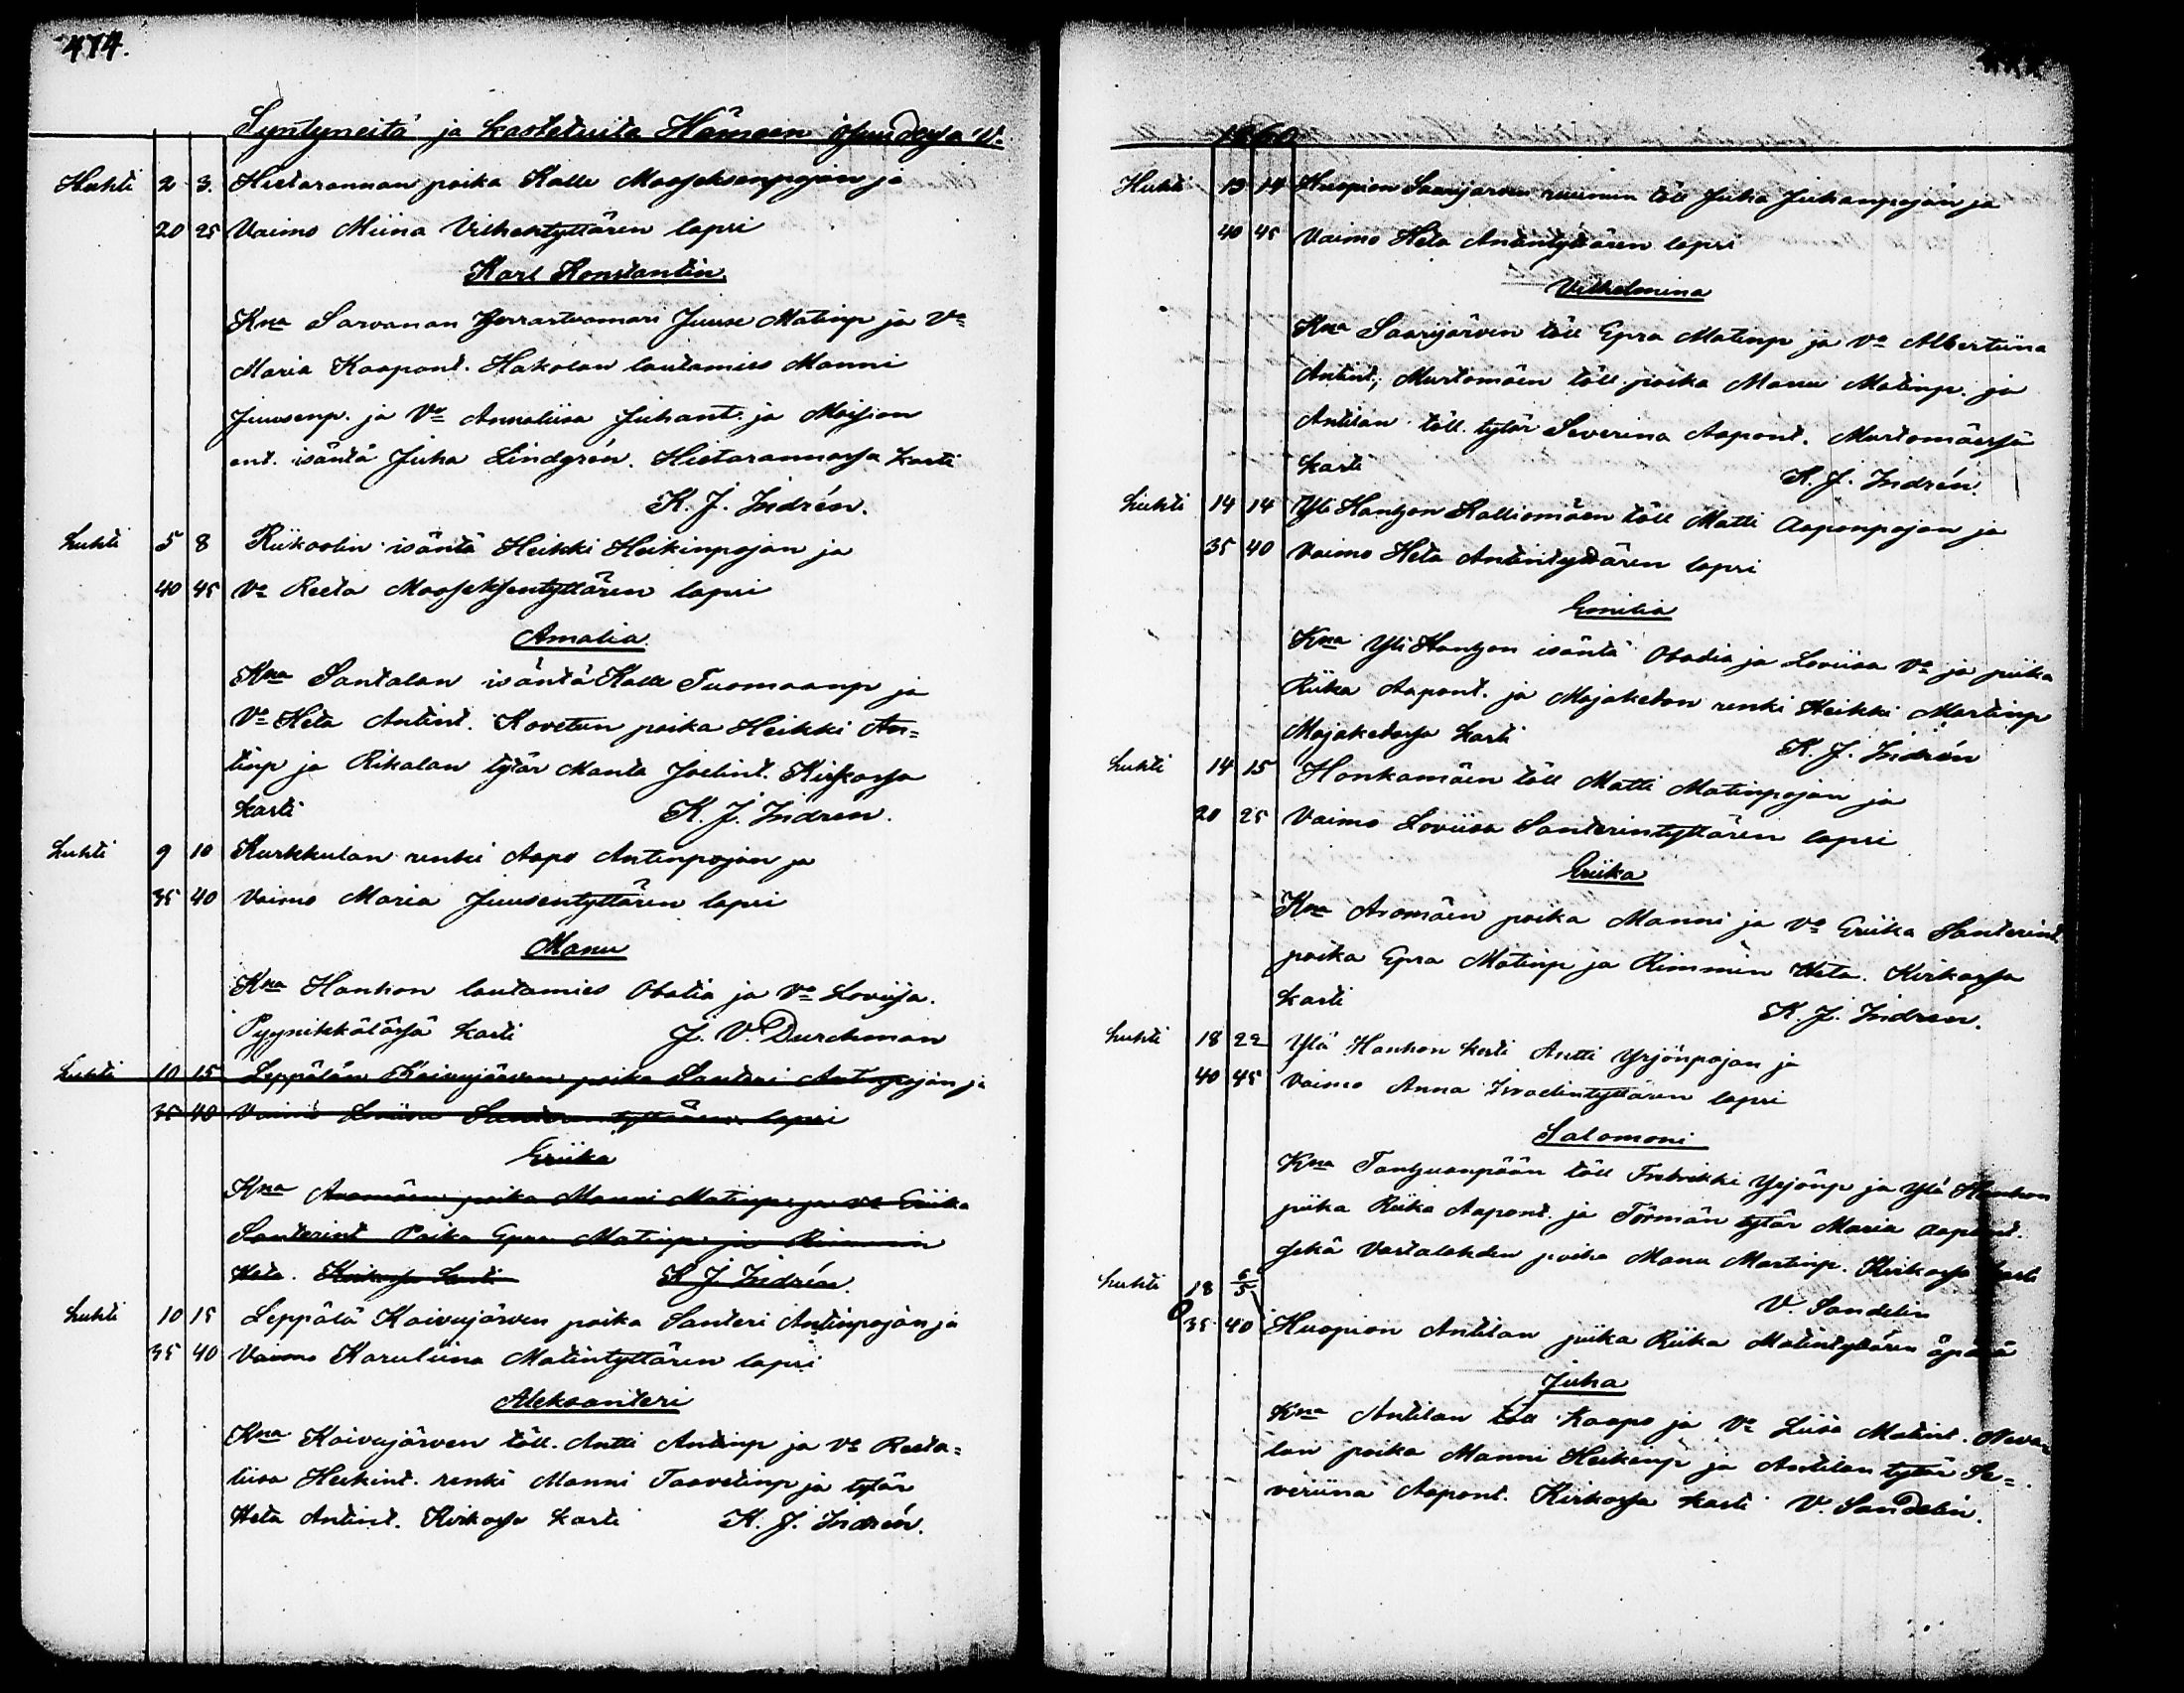 474.
Syntyneitä ja kastetuita Hämeen
Huhti 2 3. Hietarannan poika Kalle Mooseksenpojan ja
20 25 Vaimo Miina Vilhentyttären lapsi
Karl Konstantin.
Kna Sarvanan Herrastuomari Juuse Matinp ja Va
Maria Kaapont. Hakolan lautamies Manni
Juusenp. ja Va Annaliisa Juhant. ja Moision
ent. isäntä Juha Lindgrén. Hietarannassa kasti
K. J. Indrén.
huhti 5 8 Riikoolin isäntä Heikki Heikinpojan ja
40 45 Va Reeta Mooseksentyttären lapsi
Amalia.
Kna Santalan isäntä Kalle Tuomaanp ja
Va Heta Antint. Kovetun poika Heikki An=
tinp ja Rikalan tytär Manta Joelint. Kirkossa
kasti K. J. Indren.
huhti 9 10 Kurkkulan renki Aapo Antinpojan ja
35 40 Vaimo Maria Juusentyttären lapsi
Manu
Kna Hankon lautamies Obatia ja Va Loviisa.
Pyynikkälässä kasti J. V. Durchman
huhti 10 15 Leppälän Kaivujärven poika Santeri Antinpojan ja
35 40 Vaimo Loviisa Santerintyttären lapsi
Eriika
Kna Aromäen poika Manni Matinp ja va Eriika
Santerint Poika Epra Matinp ja Rimmin
Heta. Kirkossa kasti K J. Indrén.
huhti 10 15 Leppälä Kaivujärven poika Santeri Antinpojan ja
35 40 Vaimo Karuliina Matintyttären lapsi
Aleksanteri
Kna Kaivujärven töll. Antti Antinp ja va Reeta=
liisa Heikint. renki Manni Taavetinp ja tytär
Heta Antint. Kirkossa kasti K. J. Indrén.
1860
Huhti 13 14 Kuopion Saarijärven ruunun töll Juha Juhanpojan ja
40 45 Vaimo Heta Antintyttären lapsi
Vilhelmina
Kna Saarijärven töll Epra Matinp ja va Albertiina
Antint, Murtomäen töll. poika Manu Matinp. ja
Antilan töll. tytär Severina Aapont. Murtomäessä
kasti K. J. Indrén.
huhti 14 14 Yli Hangon Kalliomäen töll Matti Aaponpojan ja
35 40 Vaimo Heta Antintyttären lapsi
Emilia
Kna Yli Hangon isäntä Obadia ja Loviisa va ja piika
Riika Aapont. ja Majakedon renki Heikki Martinp
Majakedossa kasti K. J. Indrén
huhti 14 15 Honkamäen töll Matti Matinpojan ja
20 25 Vaimo Loviisa Santerintyttären lapsi
Eriika
Kna Aromäen poika Manni ja va Eriika Santerint.
poika Epra Matinp ja Rimmin Heta. Kirkossa
kasti K. J. Indrén.
huhti 18 22 Ylä Hanhon kesti Antti Yrjönpojan ja
40 45 Vaimo Anna Israelintyttären lapsi
Salomoni
Kna töll Yrjönp ja Ylä Hanhon
piika Riika Aapont. ja Törmän tytär Maria Aapont.
sekä Vastalahden poika Manu Martinp. Kirkossa kasti
V. Sandelin
huhti 18 6/5
35 40 Kuopion Antilan piika Riika Matintyttären äpärä
Juha
Kna Antilan töll Kaapo ja Va Liisa Matint. Neva=
lan poika Manni Heikinp ja Antilan tytär Se=
veriina Aapont. Kirkossa kasti V. Sandelin.